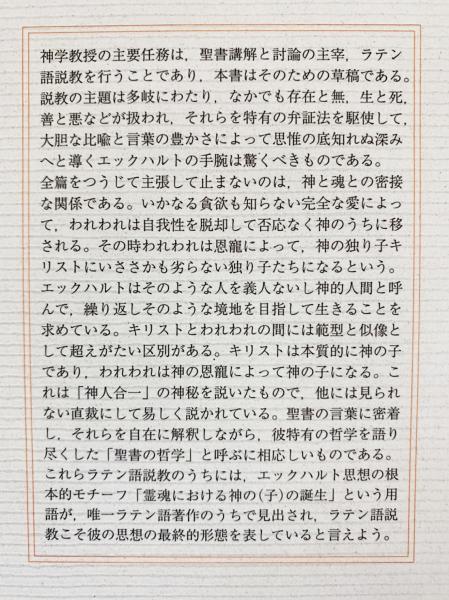 神学教授の主要任務は，聖書講解と討論の主宰，ラテン
語説教を行うことであり，本書はそのための草稿である。
説教の主題は多岐にわたり，なかでも存在と無，生と死，
善と悪などが扱われ，それらを特有の弁証法を駆使して，
大胆な比喩と言葉の豊かさによって思惟の底知れぬ深み
へと導くエックハルトの手腕は驚くべきものである。
全篇をつうじて主張して止まないのは，神と魂との密接
な関係である。いかなる貪欲も知らない完全な愛によっ
て，われわれは自我性を脱却して否応なく神のうちに移
される。その時われわれは恩寵によって，神の独り子キ
リストにいささかも劣らない独り子たちになるという。
エックハルトはそのような人を義人ないし神的人間と呼
んで，繰り返しそのような境地を目指して生きることを
求めている。キリストとわれわれの間には範型と似像と
して超えがたい区別がある。キリストは本質的に神の子
であり，われわれは神の恩寵によって神の子になる。こ
れは「神人合一」の神秘を説いたもので，他には見られ
ない直裁にして易しく説かれている。聖書の言葉に密着
し，それらを自在に解釈しながら，彼特有の哲学を語り
尽くした「聖書の哲学」と呼ぶに相応しいものである。
これらラテン語説教のうちには，エックハルト思想の根
本的モチーフ「霊魂における神の(子)の誕生」という用
語が，唯一ラテン語著作のうちで見出され，ラテン語説
教こそ彼の思想の最終的形態を表していると言えよう。